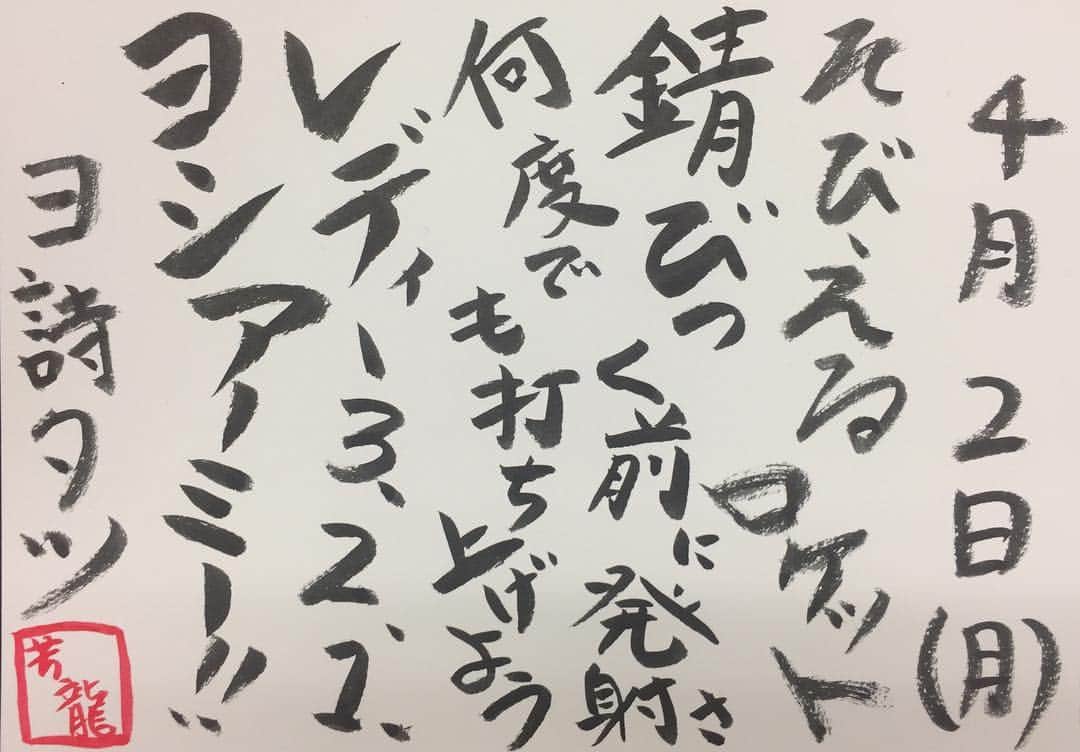 4月2日(月)
そびえるロケット
錆びつく前に発射さ
何度でも打ち上げよう
レディー3、2、1、
ヨシアーミー!!
ヨ詩タツ
芳龍